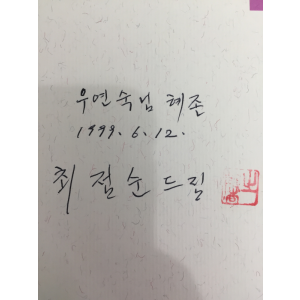 우연숙님 혜존
1999. 6. 12.
최점순드림